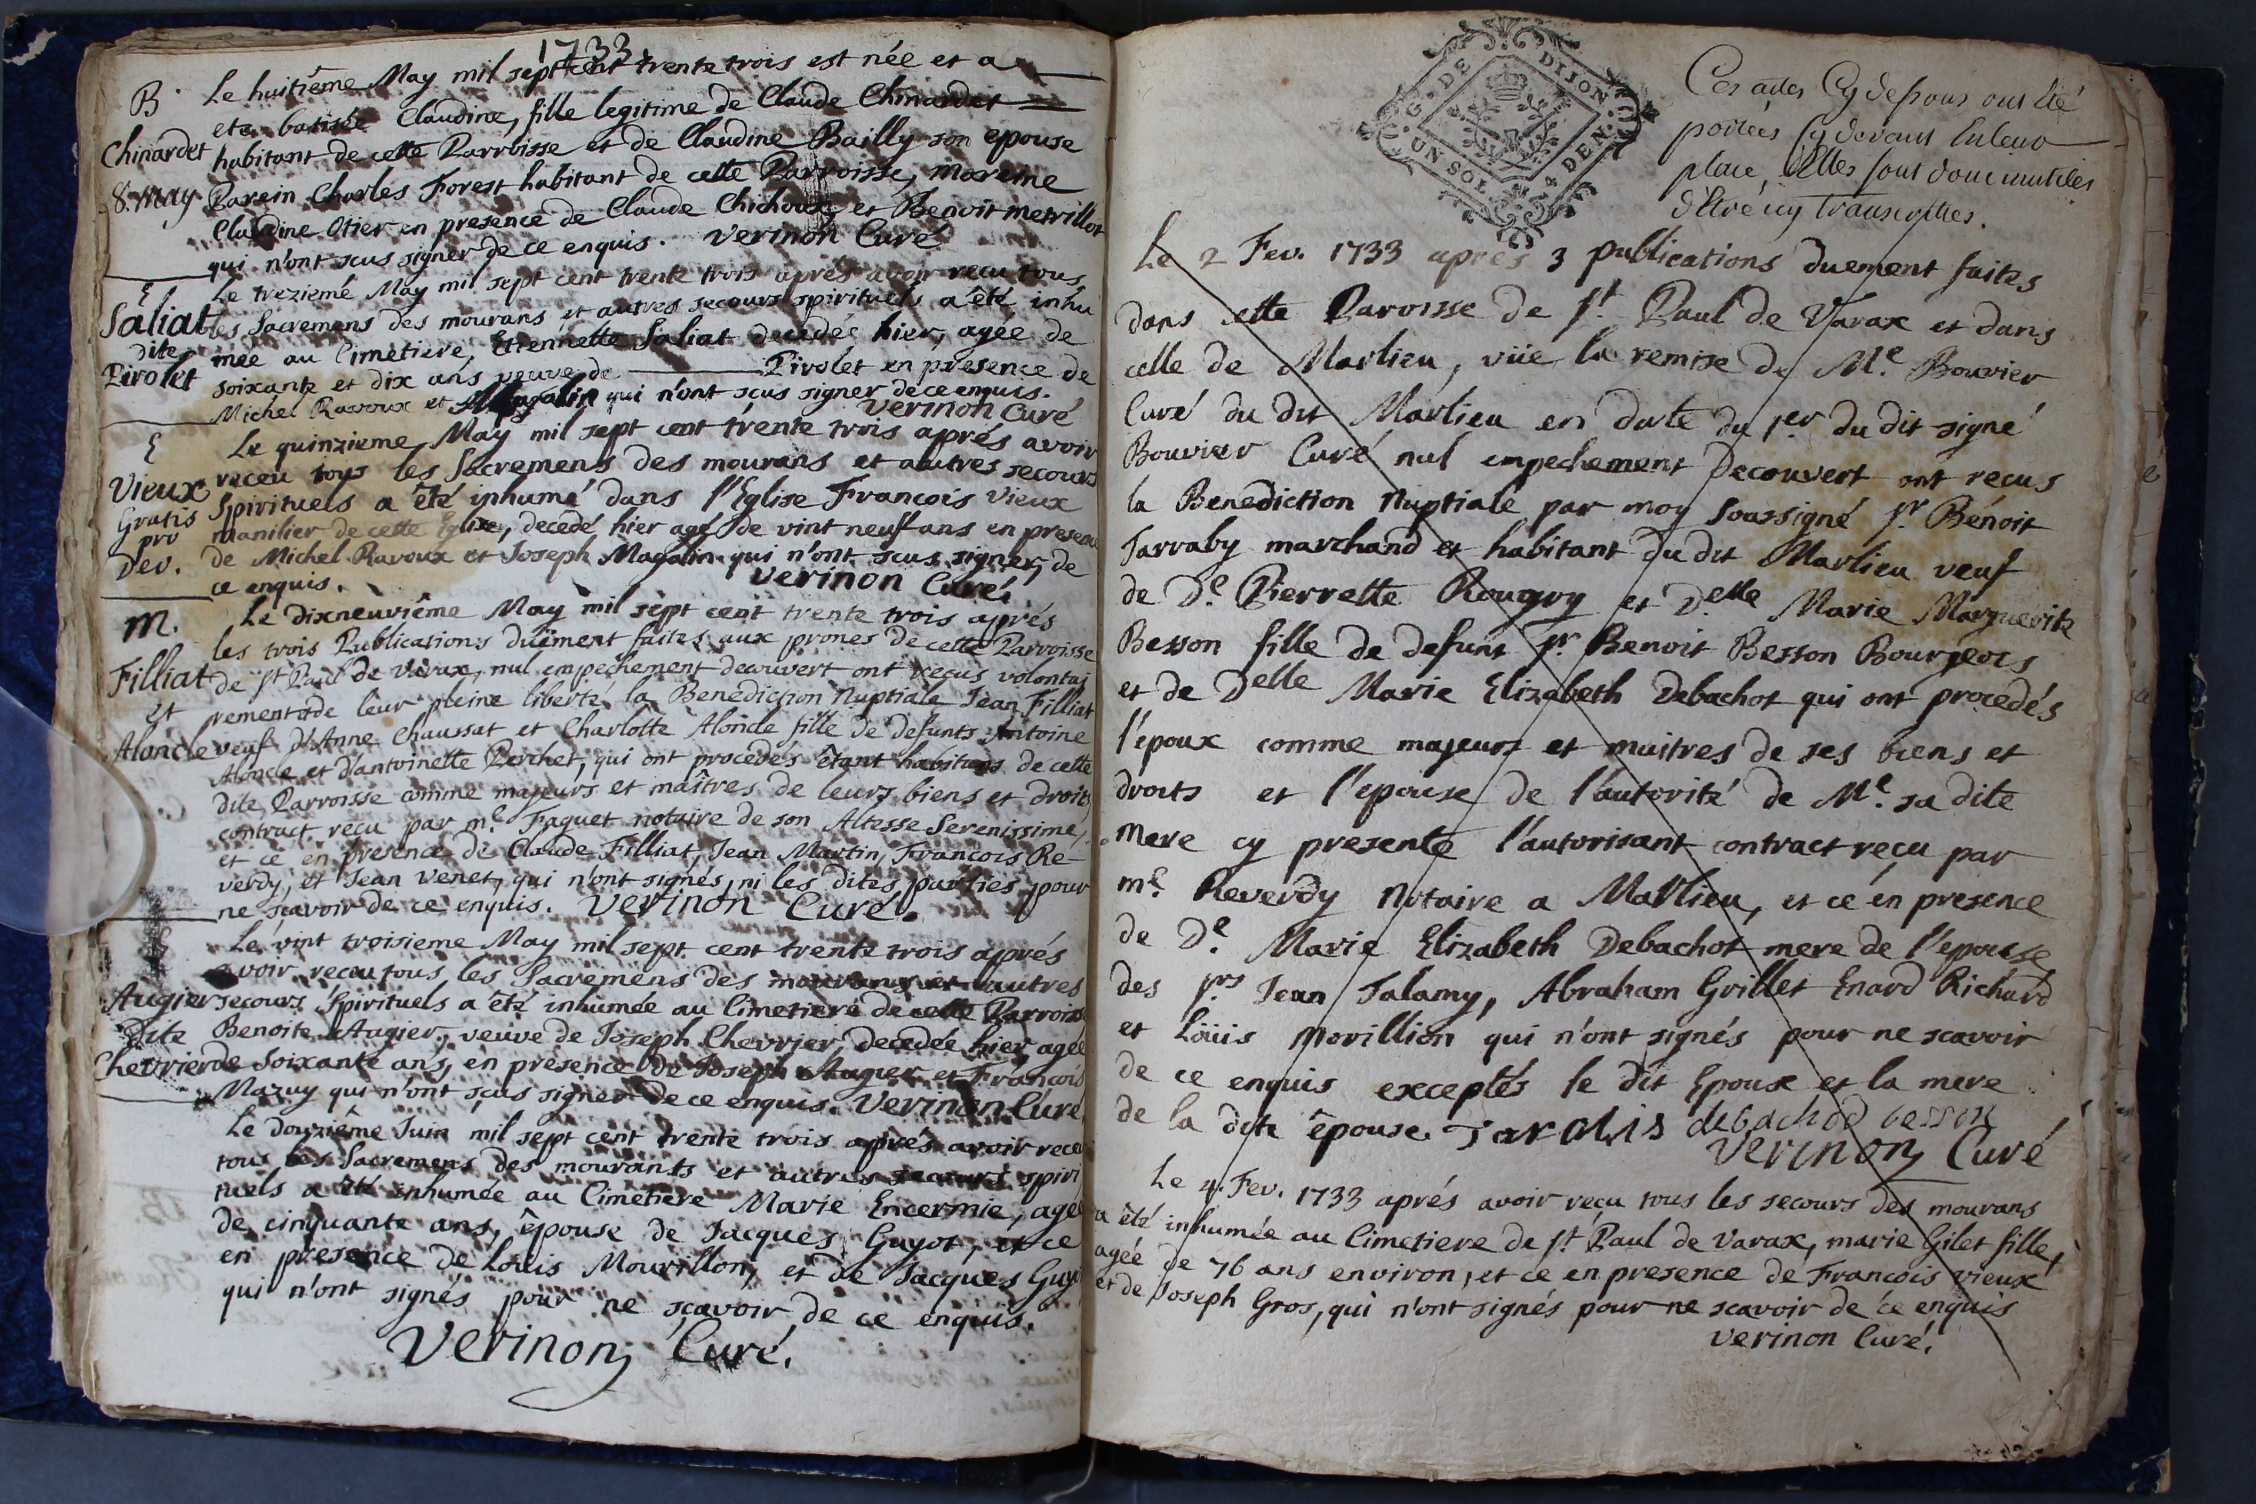 1733
B
Chinardet
8. may
Le huitiême May mil sept cent trente trois est née et a
eté batisée Claudine, fille legitime de Claude Chinardet
habitant de cette Parroisse et de Claudine Bailly son epouse
Parein Charles Forest habitant de cette Parroisse, mareine
Claudine Otier en presence de Claude Chichoux, et Benoit metrillot
qui n'ont scus signer de ce enquis. Verinon Curé
E
Saliat
dite
Pirolet
Le treziemé May mil sept cent trente trois aprés avoir recu tous
les Sacremens des mourans et autres secours spirituels a été inhu
mée au Cimetiere, Etiennette Saliat decedée hier, agée de
soixante et dix ans veuve de Pirolet en presence de
Michel Ravoux et Magalin qui n'ont scus signer de ce enquis.
Verinon Curé
E
Vieux
Gratis
pro
Dev.
Le quinzieme May mil sept cent trente trois aprés avoir
receu tous les Sacremens des mourans et autres secours
Spirituels a été inhumé dans l'Eglise Francois Vieux
manilier de cette Eglise, decedé hier agé de vint neuf ans en presence
de Michel Ravoux et Joseph Magalin qui n'ont scus signer, de
ce enquis. Verinon Curé.
M.
Filliat
et
Aloncle
Le dixneuviême May mil sept cent trente trois aprés
les trois Publications duëment faites aux prones de cette Parroisse
de st Paul de Varax, nul empechement decouvert ont reçus volontai
rement et de leur pleine liberté la Benediction Nuptiale Jean Filliat
veuf d'Anne Chaussat et Charlotte Aloncle fille de defunts Antoine
Aloncle et d'antoinette Perchet, qui ont procedés êtant habitans de cette
dite Parroisse comme majeurs et maîtres de leurs biens et droits,
contract recu par me. Faguet notaire de son Altesse Serenissime,
et ce en presence de Claude Filliat, Jean Martin, Francois Re-
verdy, et Jean Venet, qui n'ont signés, ni les dites parties pour
ne scavoir de ce enquis. Verinon Curé.
E
Augier
dite
Chevrier
Le vint troisieme May mil sept cent trente trois aprés
avoir recu tous les Sacremens des mourans et autres
secours Spirituels a été inhumée au Cimetiere de cette Parroisse
Benoite Augier, veuve de Joseph Chevrier decedée hier, agée
de soixante ans, en presence de Joseph Augier et Francois
Mazuy qui n'ont scus signer de ce enquis. Verinon Curé
Le douziême Juin mil sept cent trente trois aprés avoir receu
tous les Sacremens des mourants et autres secours spiri
tuels a êté inhumée au Cimetiere Marie Encermie, agée
de cinquante ans, êpouse de Jacques Guyot, et ce
en presence de Loüis Mourillon, et de Jacques Guyot
qui n'ont signés pour ne sçavoir de ce enquis.
Verinon Curé.
G. DE DIJON
UN SOL 4 DEN
Ces actes Cy dessous ont Eté
portées Cy devant En leur
place, Elles sont donc inutiles
d'Etre icy transcrittes.
Le 2 Fev. 1733 aprés 3 publications duement faites
dans cette Paroisse de st. Paul de Varax et dans
celle de Marlieu, vüe la remise de Me. Bouvier
Curé du dit Marlieu en date du 1er du dit signé
Bouvier Curé nul empechement decouvert ont recus
la Benediction Nuptiale par moy soussigné sr. Bénoit
Jarraby marchand et habitant du dit Marlieu veuf
de De. Pierrette Rougvy et Delle Marie Marguerite
Besson fille de defunt sr. Benoit Besson Bourgeois
et de Delle Marie Elizabeth Debachot qui ont procedés
l'epoux comme majeurs et maitres de ses biens et
droits et l'epouse de l'autorité de Me. sa dite
Mere cy presente l'autorisant contract reçu par
me. Reverdy Notaire a Marlieu, et ce en presence
de De. Marie Elizabeth Debachot mere de l'epouse
des srs Jean Talamy, Abraham Grillet Enard Richard
et Loüis Morillion qui n'ont signés pour ne scavoir
de ce enquis exceptés le dit Epoux et la mere
de la dite êpouse. debachod besson
Verinon Curé
Le 4. Fev. 1733 aprés avoir reçu tous les secours des mourans
a êté inhumée au Cimetiere de st Paul de Varax, marie Gilet fille,
agée de 76 ans environ, et ce en presence de Francois vieux
et de Joseph Gros, qui n'ont signés pour ne scavoir de ce enquis
Verinon Curé.